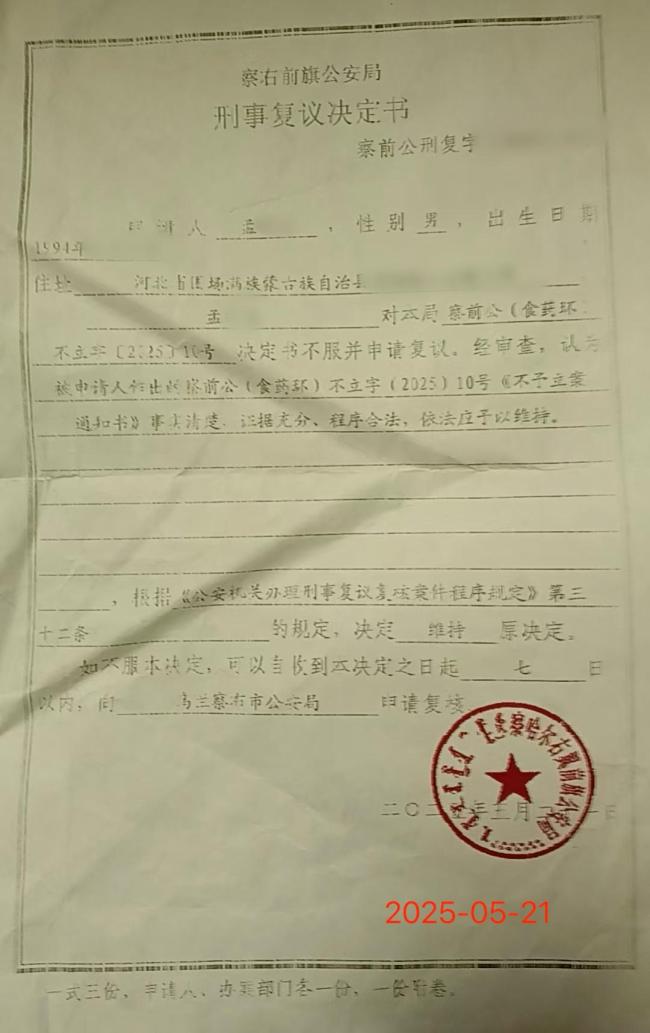 察右前旗公安局
刑事复议决定书
察前公刑复字
申请人 孟 ，性别 男 ，出生日期
1994年
住址 河北省围场满族蒙古族自治县
孟 对本局 察前公（食药环）
不立字〔2025〕10号 决定书不服并申请复议。经审查，认为
被申请人作出的察前公（食药环）不立字（2025）10号《不予立案
通知书》事实清楚、证据充分、程序合法，依法应予以维持。
，根据《公安机关办理刑事复议复核案件程序规定》第三
十二条 的规定，决定 维持 原决定。
如不服本决定，可以自收到本决定之日起 七 日
以内，向 乌兰察布市公安局 申请复核。
察哈尔右翼前旗公安局
二〇二 年 月 日
2025-05-21
一式三份，申请人、办案部门各一份，一份附卷。